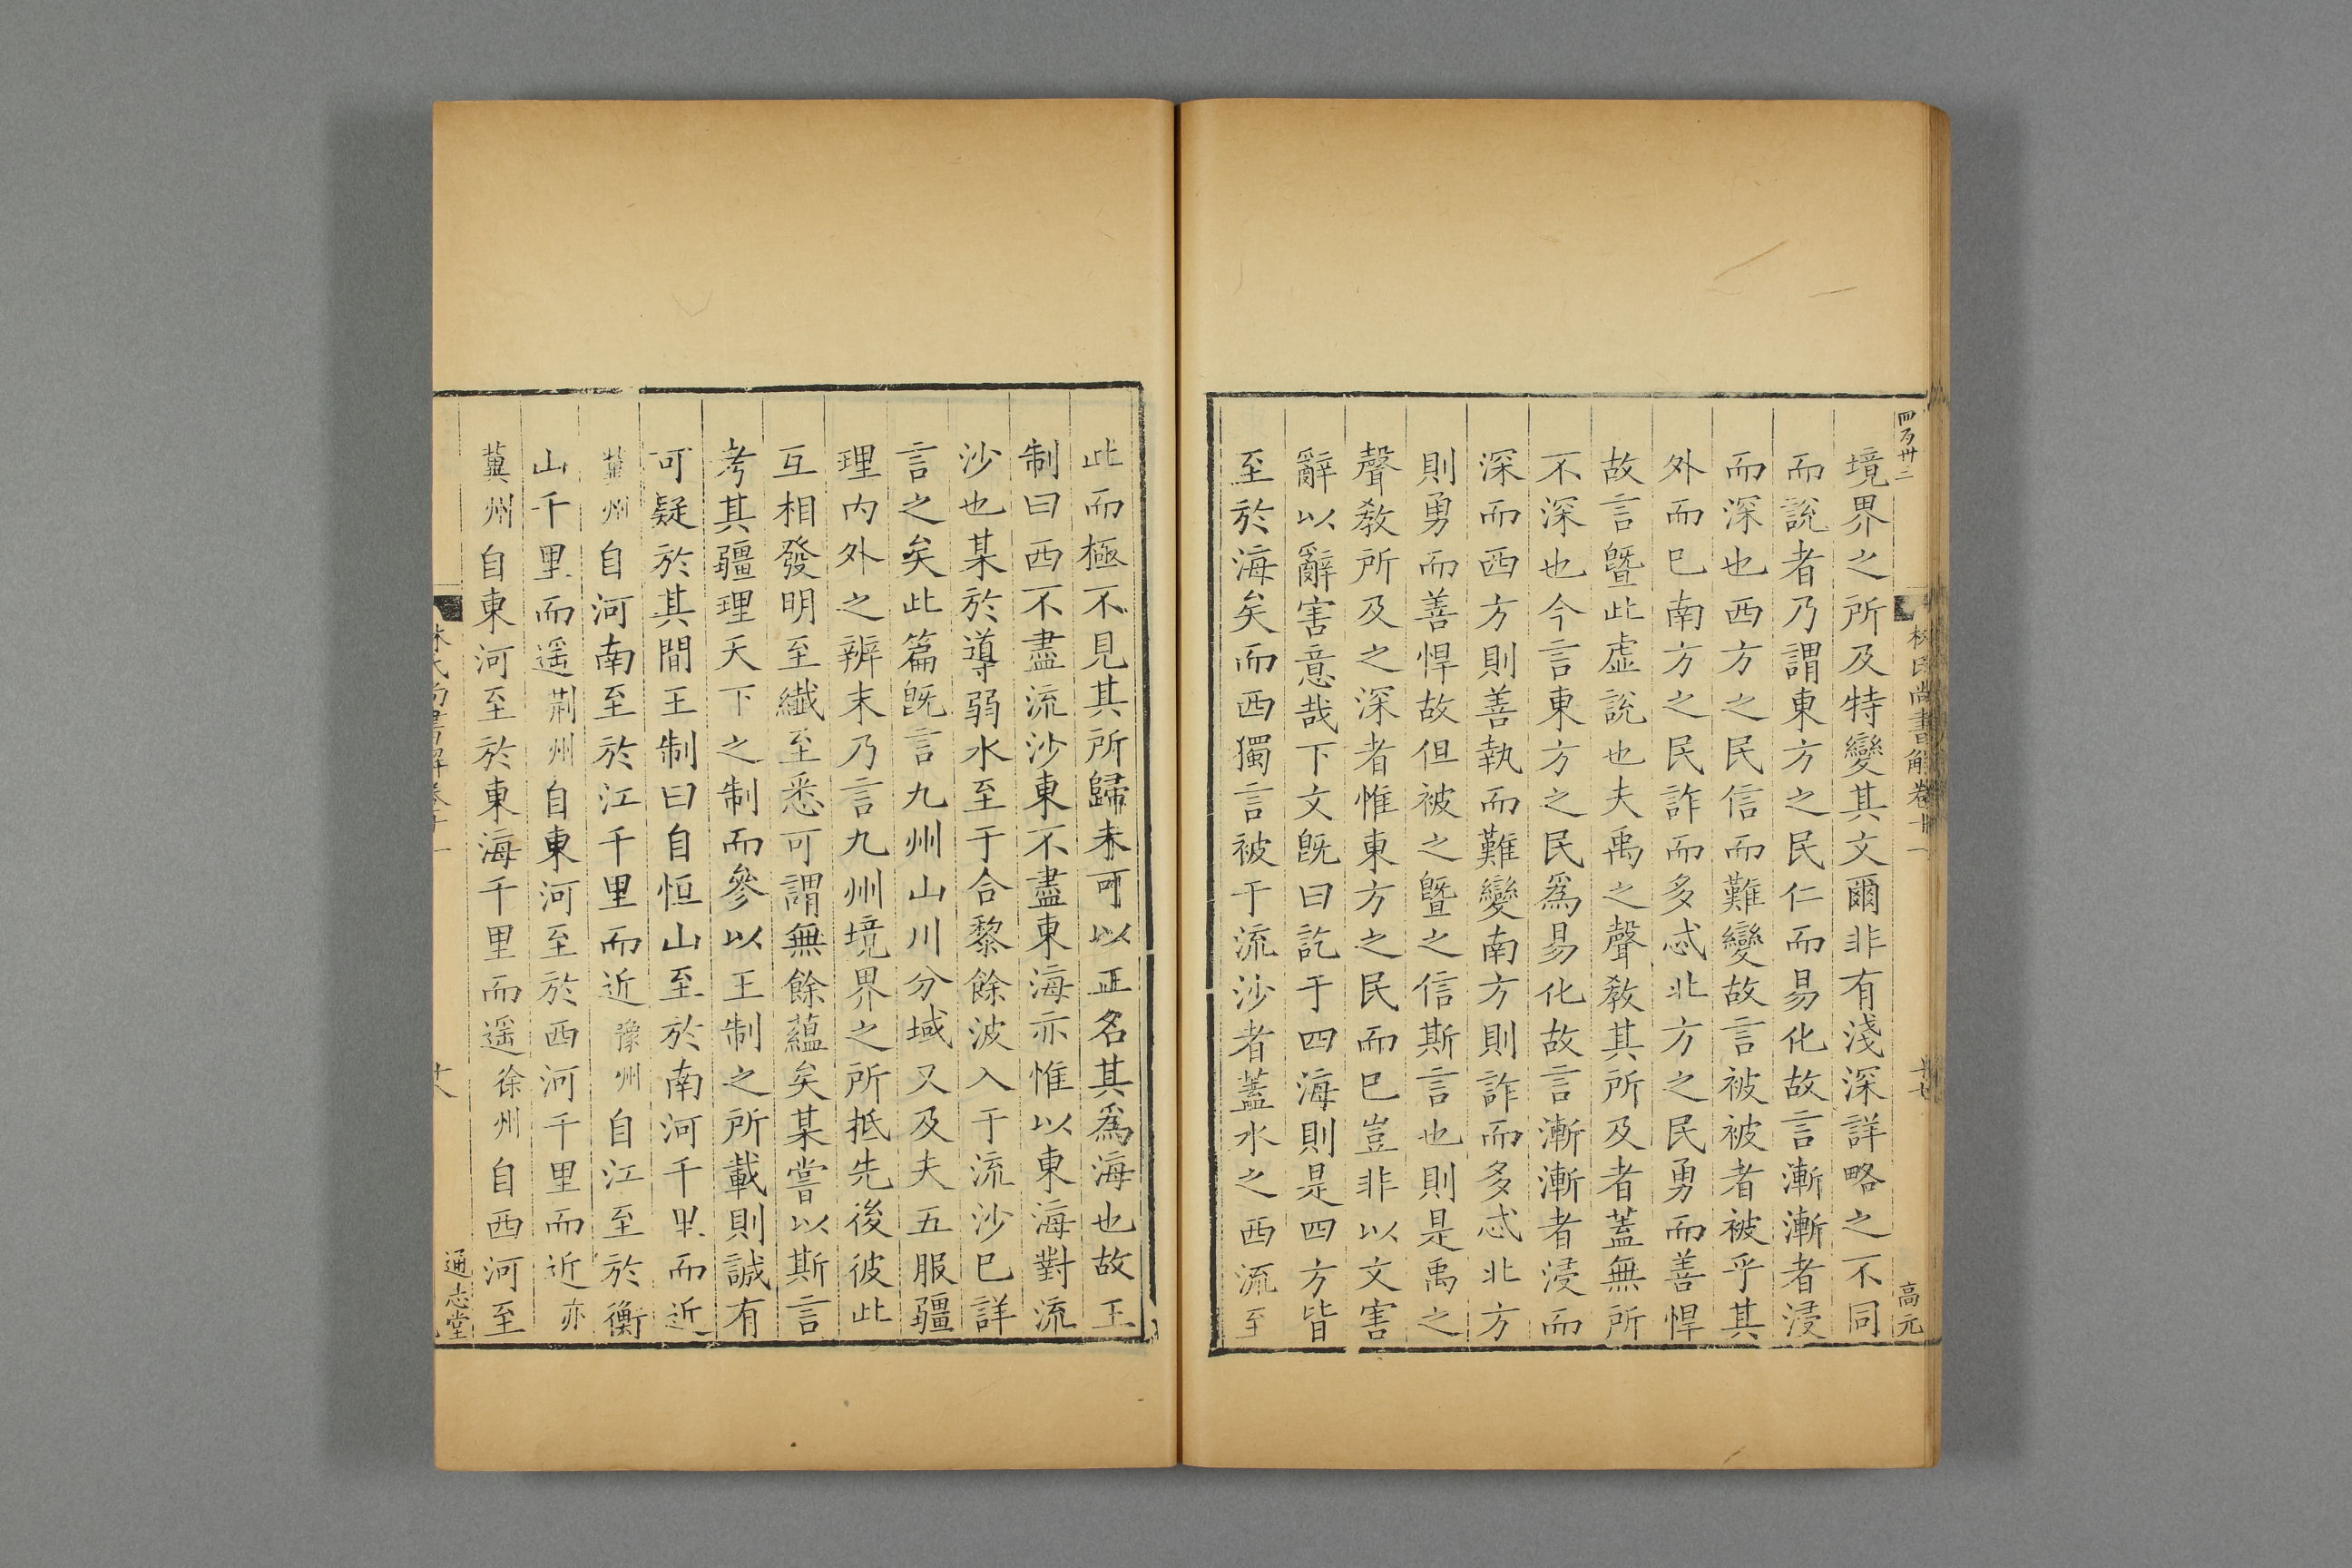 四百卅三
林氏尚書解卷十一
廿七
高元
境界之所及特變其文爾非有淺深詳略之不同
而說者乃謂東方之民仁而易化故言漸漸者浸
而深也西方之民信而難變故言被被者被乎其
外而巳南方之民詐而多忒北方之民勇而善悍
故言曁此虛說也夫禹之聲敎其所及者蓋無所
不深也今言東方之民爲易化故言漸漸者浸而
深而西方則善執而難變南方則詐而多忒北方
則勇而善悍故但被之曁之信斯言也則是禹之
聲敎所及之深者惟東方之民而巳豈非以文害
辭以辭害意哉下文旣曰訖于四海則是四方皆
至於海矣而西獨言被于流沙者蓋水之西流至
此而極不見其所歸未可以正名其爲海也故王
制曰西不盡流沙東不盡東海亦惟以東海對流
沙也某於導弱水至于合黎餘波入于流沙巳詳
言之矣此篇旣言九州山川分域又及夫五服疆
理内外之辨末乃言九州境界之所抵先後彼此
互相發明至纖至悉可謂無餘蘊矣某嘗以斯言
考其疆理天下之制而參以王制之所載則誠有
可疑於其間王制曰自恒山至於南河千里而近
冀州自河南至於江千里而近豫州自江至於衡
山千里而遥荆州自東河至於西河千里而近亦
冀州自東河至於東海千里而遥徐州自西河至
林氏尚書解卷十一
廿八
通志堂